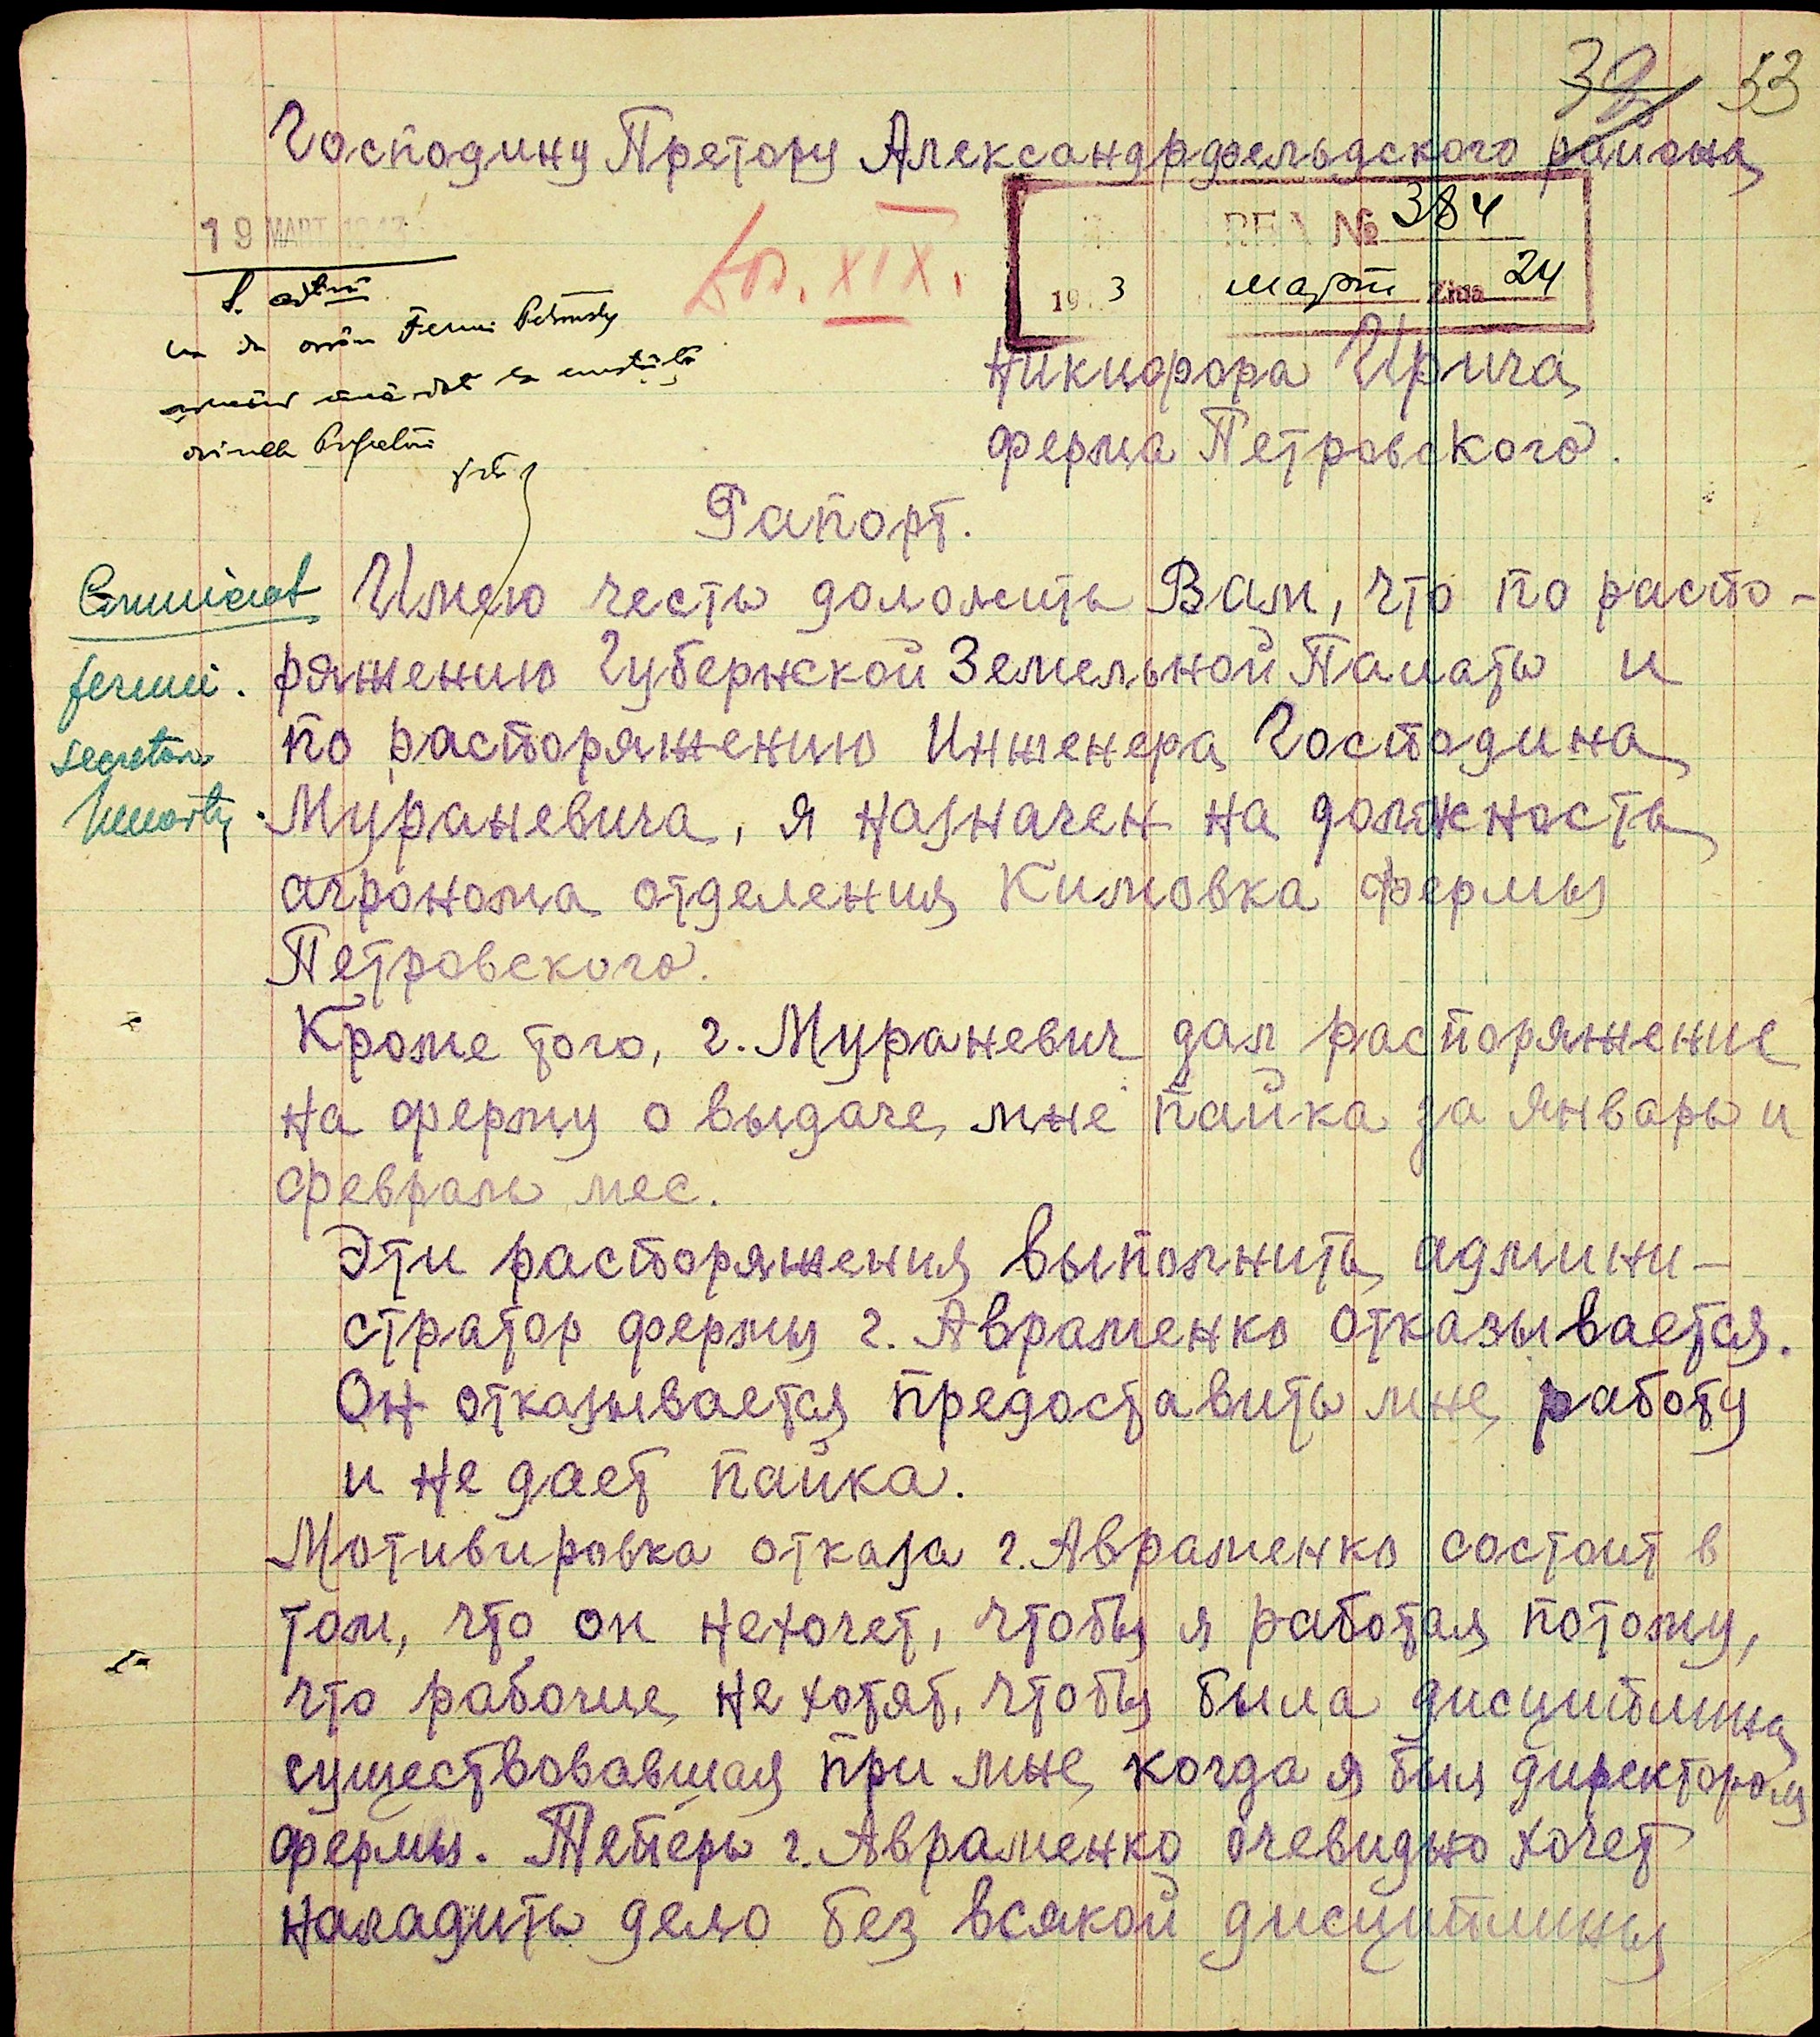 33
Господину Претору Александрфельдского района
19 МАРТ. 1943
REG № 384
Do. XIX.
19 3 март Ziua 24
Никифора Ирича
ферма Петровского.
Рапорт.
Comunicat
Имею честь доложить Вам, что по распо-
fermei.
ряжению Губернской Земельной Палаты и
secretar
по распоряжению Инженера Господина
Мураневича, я назначен на должность
агронома отделения Кимовка фермы
Петровского.
Кроме того, г. Мураневич дал распоряжение
на ферму о выдаче мне пайка за январь и
февраль мес.
Эти распоряжения выполнить админи-
стратор фермы г. Авраменко отказывается.
Он отказывается предоставить мне работу
и не дает пайка.
Мотивировка отказа г. Авраменко состоит в
том, что он нехочет, чтобы я работал потому,
что рабочие не хотят, чтобы была дисциплина
существовавшая при мне, когда я был директором
фермы. Теперь г. Авраменко очевидно хочет
наладить дело без всякой дисциплины